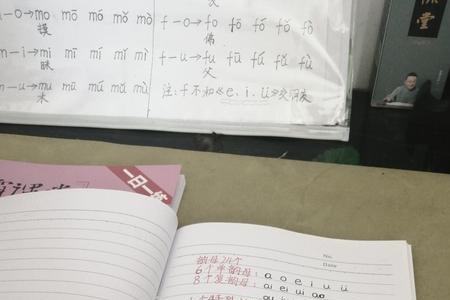 m-o→mo mō mó mǒ mò
摸
m-i→mi mī mí mǐ mì
眯
m-u→mu mū mú mǔ mù
木
f-o→fo fō fó fǒ fò
佛
f-u→fu fū fú fǔ fù
父
注:f不和《e.i.ü》交朋友
堂
一日一练
No.
Date
韵母24个
6个单韵母: a o e i u ü
8个复韵母: ai ei ui ao